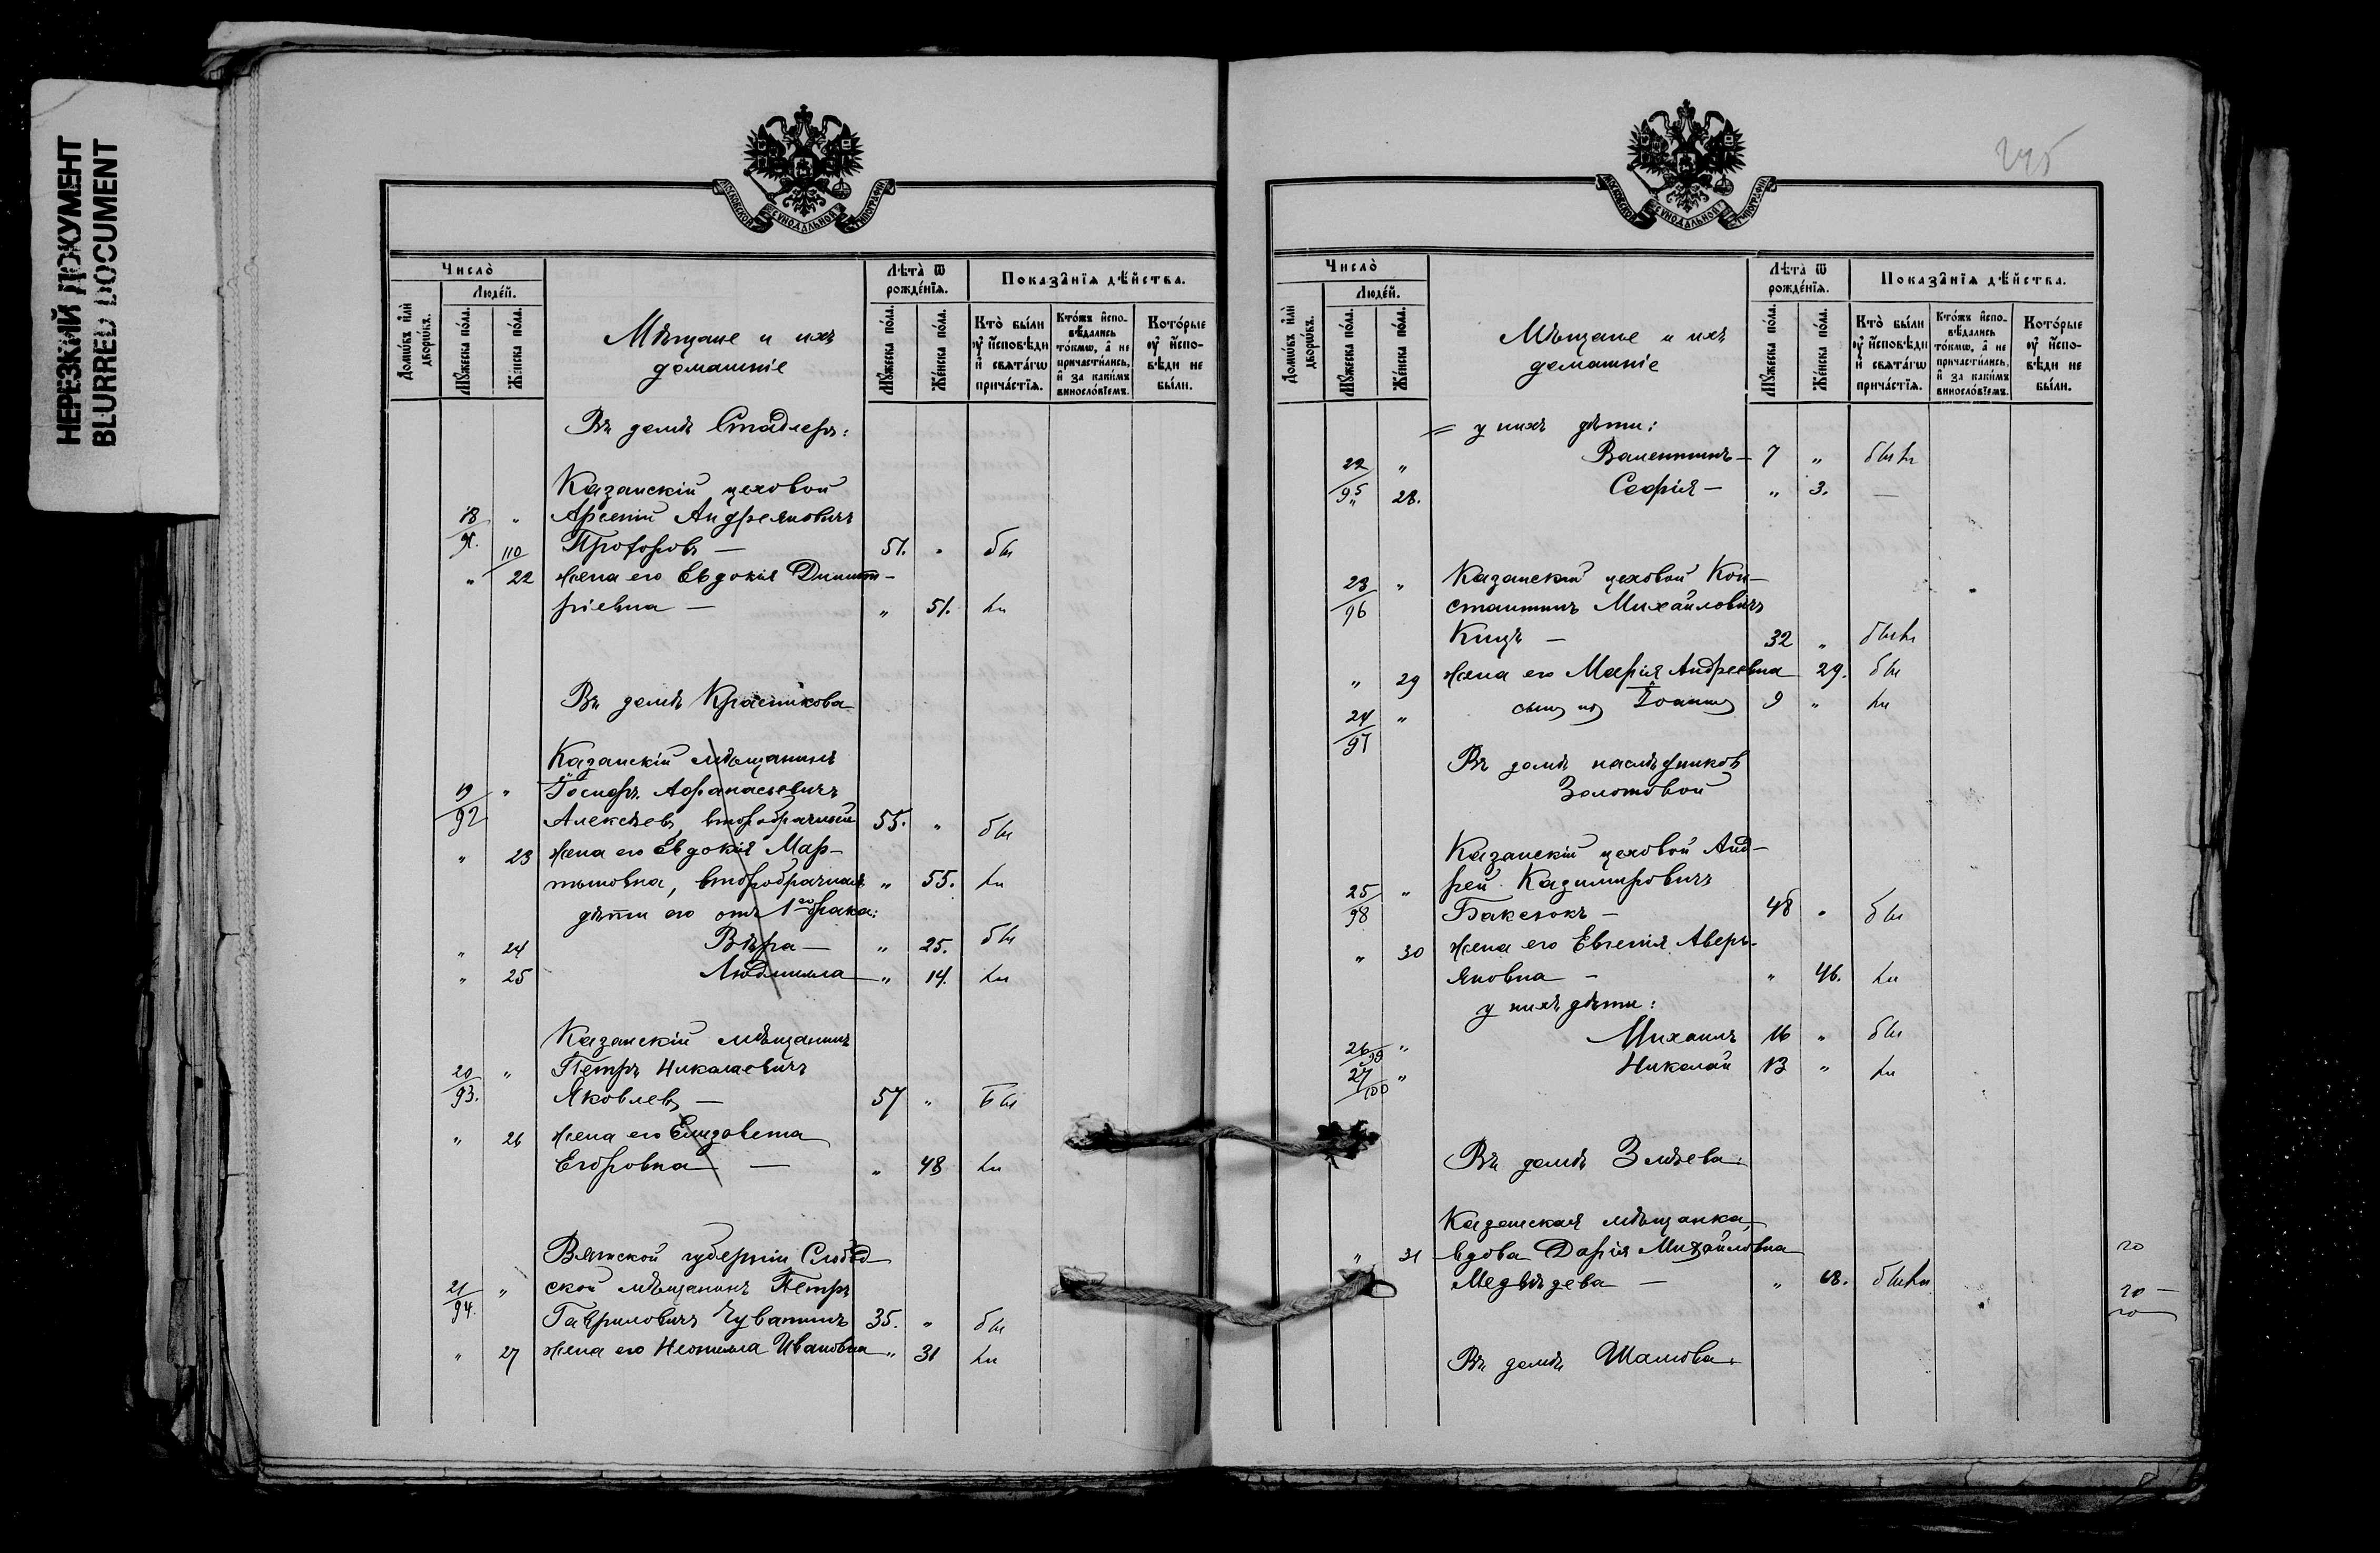 НЕРЕЗКИЙ ДОКУМЕНТ
BLURRED DOCUMENT
МОСКОВСКОЙ СУНОДАЛЬНОЙ ТИПОГРАФІИ
Число̀
Людѐй.
Домѡ́въ и҆лѝ дворѡ́въ.
Мꙋ́жеска по́ла.
Же́нска по́ла.
Мѣщане и ихъ
домашніе
Лѣта̀ ѿ рожде́нїѧ.
Мꙋ́жеска по́ла.
Же́нска по́ла.
Показа̑нїѧ дѣ́йства.
Кто̀ бы́ли ᲂу҆ и҆сповѣди и҆ свѧта́гѡ прича́стїѧ.
Кто́жъ и҆спо-вѣдались то́кмѡ, а҆ не причасти́лись, и҆ за каки́мъ винословїемъ.
Кото́рые ᲂу҆ и҆спо-вѣди не бы́ли.
Въ домѣ Стадлеръ:
Казанскій цеховой
18/91. " Арсеній Андреяновичъ
Прохоровъ — 51. " бы
" 110/22 жена его Евдокія Димит-
ріевна — " 51. ли
Въ домѣ Красикова
Казанскій мѣщанинъ
19/92 " Іосифъ Афанасьевичъ
Алексѣевъ, второбрачный 55. " бы
" 23 жена его Евдокія Мар-
тыновна, второбрачная " 55. ли
дѣти его отъ 1го брака:
" 24 Вѣра — " 25. бы
" 25 Людмила — " 14. ли
Казанскій мѣщанинъ
20/93. " Петръ Николаевичъ
Яковлевъ — 57 " бы
" 26 жена его Елизавета
Егоровна — " 48 ли
Вятской губерніи Слобод-
21/94. " ской мѣщанинъ Петръ
Гавриловичъ Чувашинъ 35. " бы
" 27 жена его Неонилла Ивановна " 31 ли
МОСКОВСКОЙ СУНОДАЛЬНОЙ ТИПОГРАФІИ
245
Число̀
Людѐй.
Домѡ́въ и҆лѝ дворѡ́въ.
Мꙋ́жеска по́ла.
Же́нска по́ла.
Мѣщане и ихъ
домашніе
Лѣта̀ ѿ рожде́нїѧ.
Мꙋ́жеска по́ла.
Же́нска по́ла.
Показа̑нїѧ дѣ́йства.
Кто̀ бы́ли ᲂу҆ и҆сповѣди и҆ свѧта́гѡ прича́стїѧ.
Кто́жъ и҆спо-вѣдались то́кмѡ, а҆ не причасти́лись, и҆ за каки́мъ винословїемъ.
Кото́рые ᲂу҆ и҆спо-вѣди не бы́ли.
= у нихъ дѣти:
22/95 " Валентинъ — 7 " были
" 28. Софія — " 3. —
23/96 " Казанскій цеховой Кон-
стантинъ Михайловичъ
Кицъ — 32 " были
" 29 жена его Марія Андреевна 29. бы
24/97 " сынъ ихъ Іоаннъ 9 " ли
Въ домѣ наслѣдниковъ
Золотовой
Казанскій цеховой Анд-
25/98 " рей Казимировичъ
Баксюкъ — 48 " бы
" 30 жена его Евгенія Аверь-
яновна — " 46. ли
у нихъ дѣти:
26/99 " Михаилъ 16 " бы
27/100 " Николай 13 " ли
Въ домѣ Змѣева:
Казанская мѣщанка,
" 31 вдова Дарія Михайловна
Медвѣдева — " 68. были
Въ домѣ Шамова:
20
20 —
20